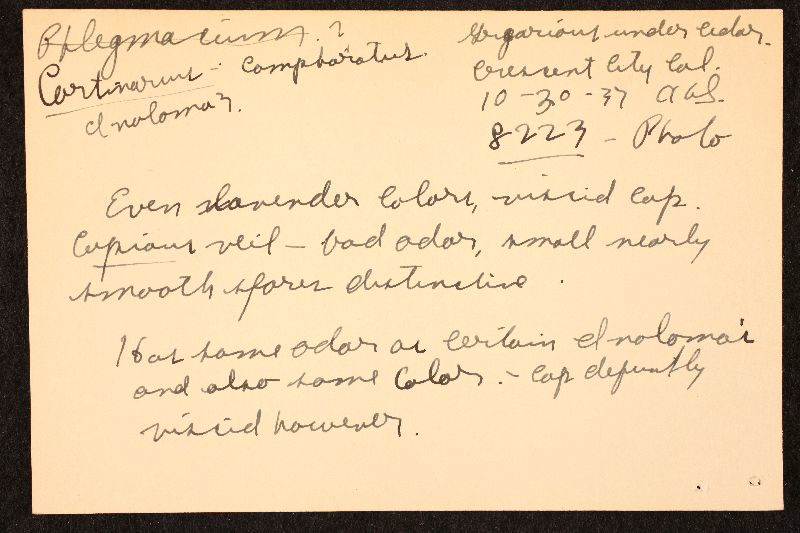 Phlegmacium. ?
Cortinarius - comphoratus.
Inoloma?.
Gregarious under cedar.
Crescent City Cal.
10-30-37 AHS.
8223 - Photo
Even lavender colors, viscid cap.
Copious veil - bad odor, small nearly
smooth spores distinctive.
Has same odor as certain Inoloma's
and also same Color. - cap defintly
viscid however.